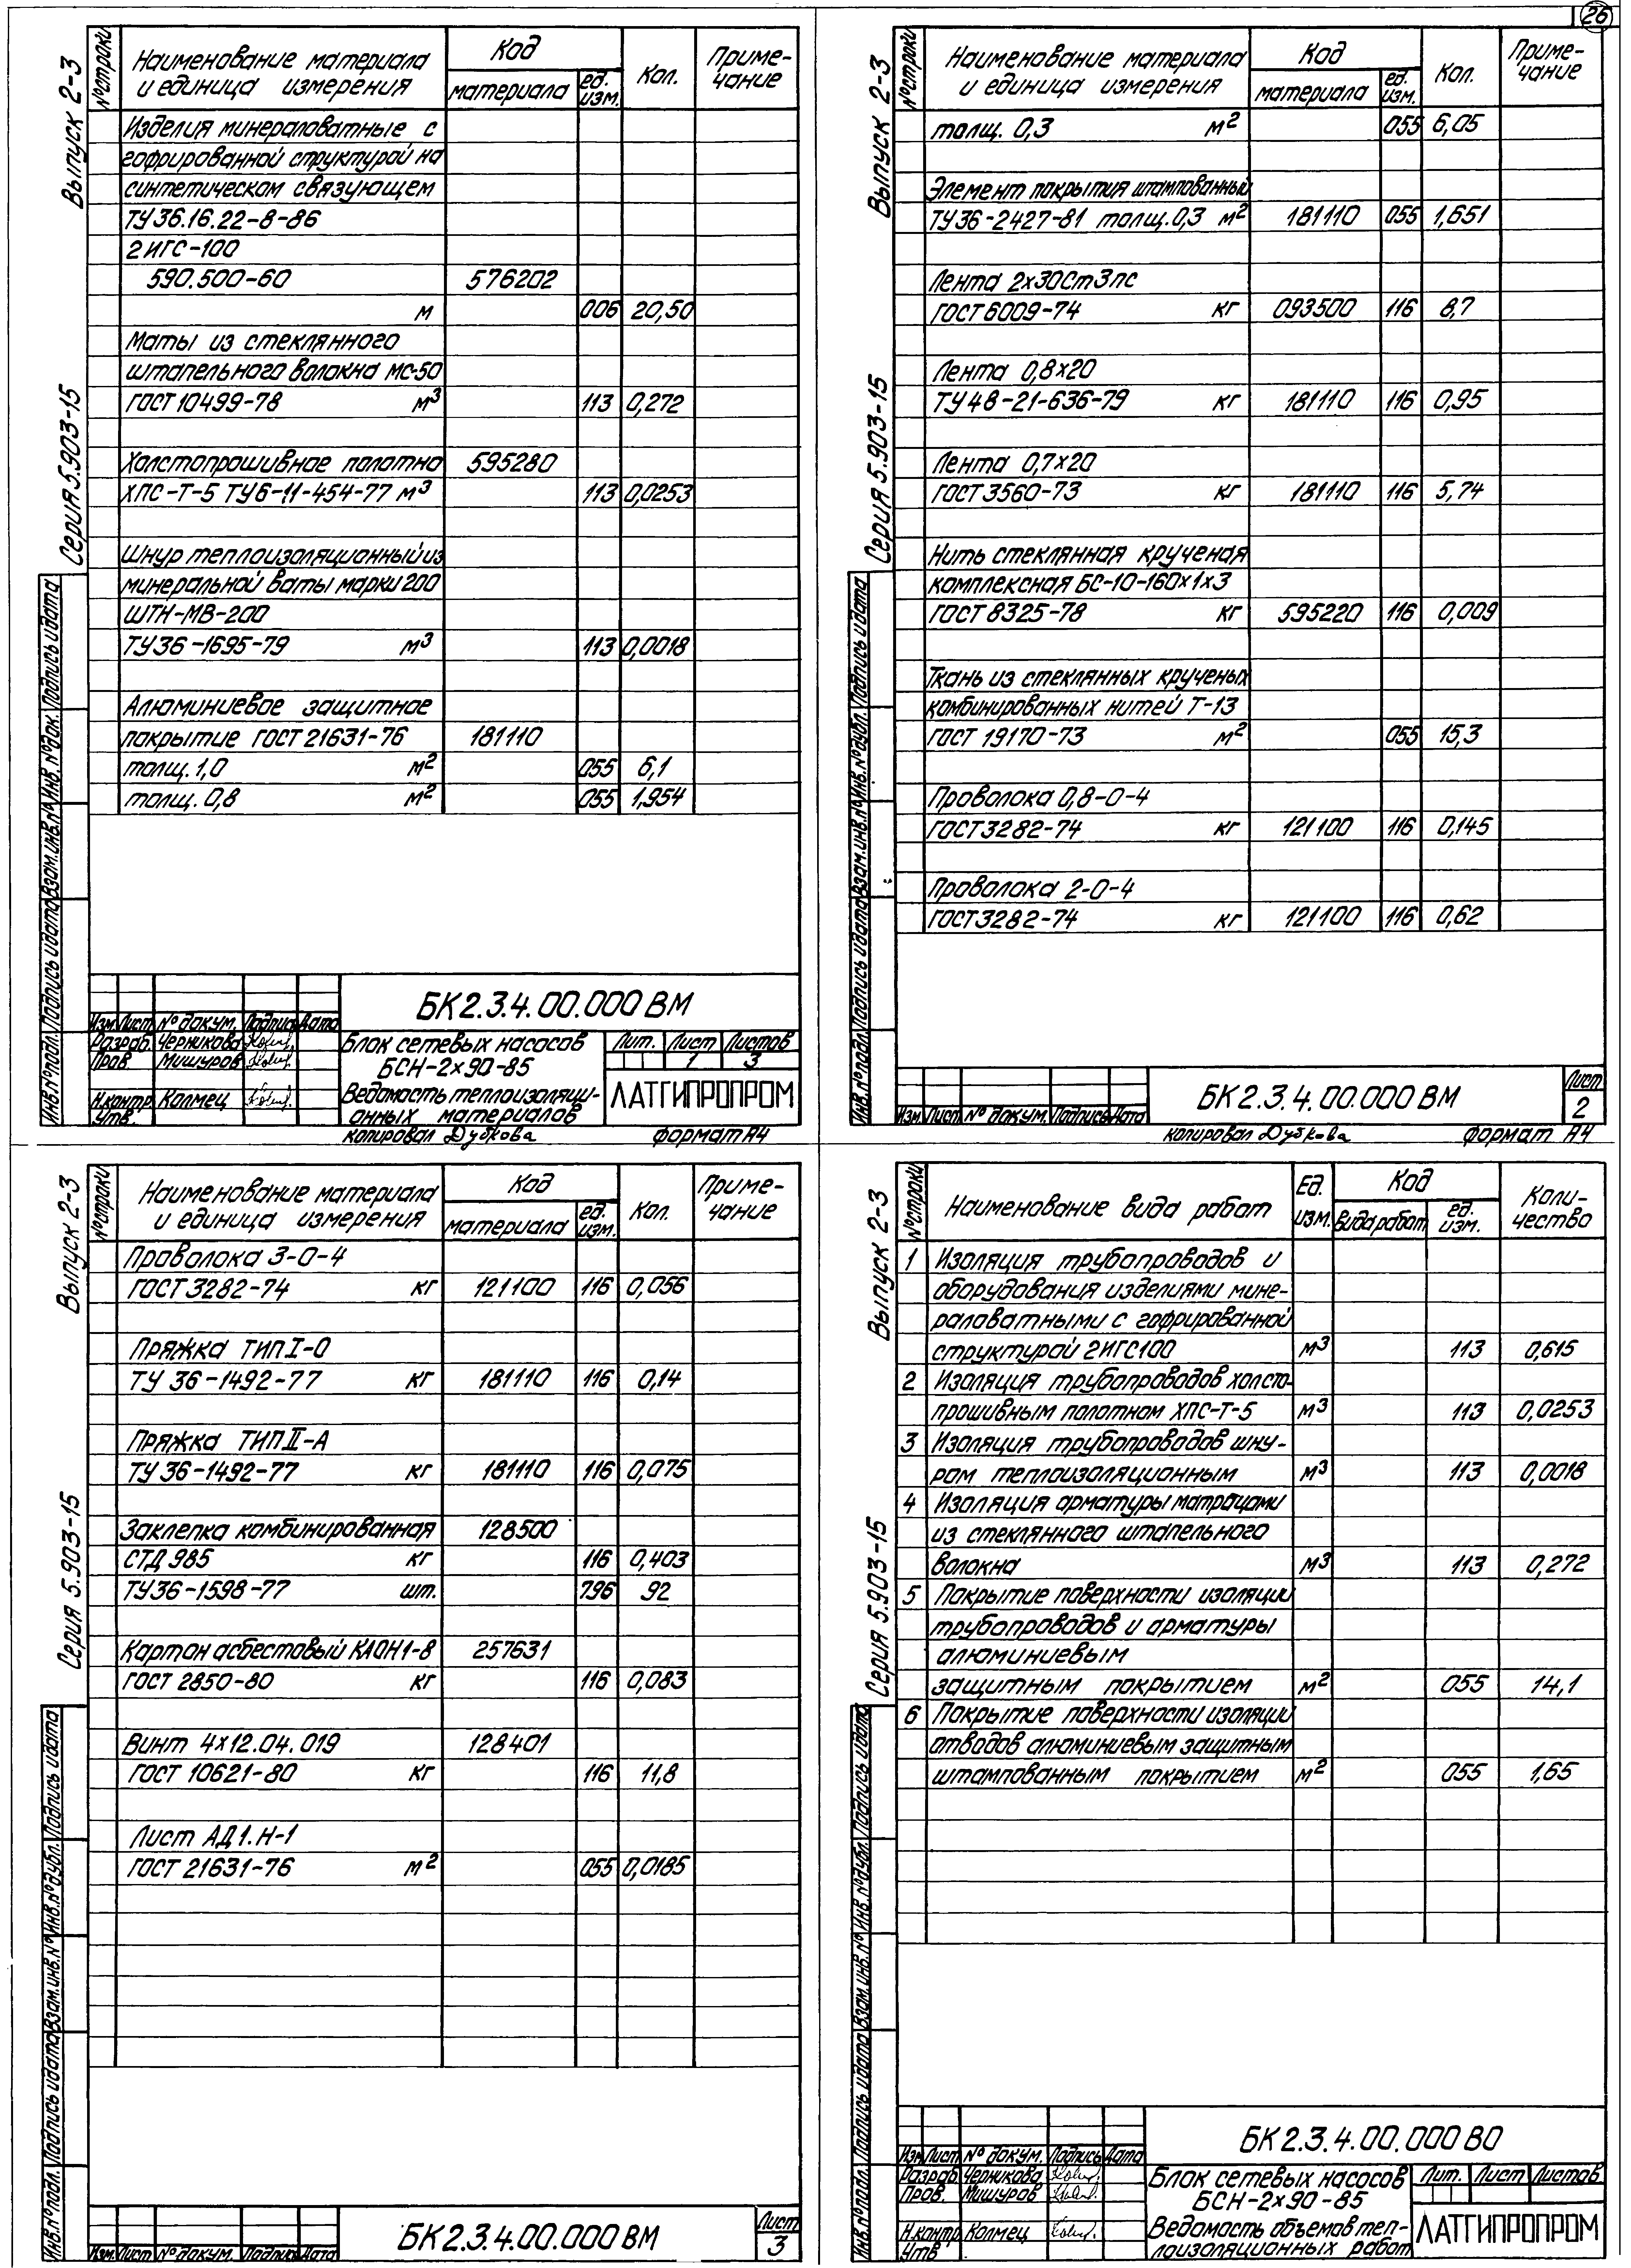 26
Выпуск 2-3
Серия 5.903-15
№ строки
Наименование материала и единица измерения
Код
материала
ед. изм.
Кол.
Примечание
Изделия минераловатные с
гофрированной структурой на
синтетическом связующем
ТУ 36.16.22-8-86
2ИГС-100
590.500-60 576202
м 006 20,50
Маты из стеклянного
штапельного волокна МС-50
ГОСТ 10499-78 м³ 113 0,272
Холстопрошивное полотно 595280
ХПС-Т-5 ТУ6-11-454-77 м³ 113 0,0253
Шнур теплоизоляционный из
минеральной ваты марки 200
ШТН-МВ-200
ТУ36-1695-79 м³ 113 0,0018
Алюминиевое защитное
покрытие ГОСТ 21631-76 181110
толщ. 1,0 м² 055 6,1
толщ. 0,8 м² 055 1,954
Инв.№ подл. Подпись и дата Взам.инв.№ Инв.№ док. Подпись и дата
БК2.3.4.00.000 ВМ
Изм. Лист № докум. Подпись Дата
Разраб. Черникова
Пров. Мишуров
Н.контр. Колмец
Утв.
Блок сетевых насосов
БСН-2×90-85
Ведомость теплоизоляци-
онных материалов
Лит. Лист Листов
1 3
ЛАТГИПРОПРОМ
копировал Дубкова формат А4
Выпуск 2-3
Серия 5.903-15
№ строки
Наименование материала и единица измерения
Код
материала
ед. изм.
Кол.
Примечание
толщ. 0,3 м² 055 6,05
Элемент покрытия штампованный
ТУ36-2427-81 толщ. 0,3 м² 181110 055 1,651
Лента 2х30Ст3пс
ГОСТ 6009-74 кг 093500 116 8,7
Лента 0,8×20
ТУ 48-21-636-79 кг 181110 116 0,95
Лента 0,7×20
ГОСТ 3560-73 кг 181110 116 5,74
Нить стеклянная крученая
комплексная БС-10-160×1×3
ГОСТ 8325-78 кг 595220 116 0,009
Ткань из стеклянных крученых
комбинированных нитей Т-13
ГОСТ 19170-73 м² 055 15,3
Проволока 0,8-0-4
ГОСТ 3282-74 кг 121100 116 0,145
Проволока 2-0-4
ГОСТ 3282-74 кг 121100 116 0,62
Инв.№ подл. Подпись и дата Взам.инв.№ Инв.№ дубл. Подпись и дата
Изм. Лист № докум. Подпись Дата
БК2.3.4.00.000 ВМ
Лист
2
копировал Дубкова формат А4
Выпуск 2-3
Серия 5.903-15
№ строки
Наименование материала и единица измерения
Код
материала
ед. изм.
Кол.
Примечание
Проволока 3-0-4
ГОСТ 3282-74 кг 121100 116 0,056
Пряжка тип I-О
ТУ 36-1492-77 кг 181110 116 0,14
Пряжка тип II-А
ТУ 36-1492-77 кг 181110 116 0,075
Заклепка комбинированная 128500
СТД 985 кг 116 0,403
ТУ36-1598-77 шт. 796 92
Картон асбестовый КАОН1-8 257631
ГОСТ 2850-80 кг 116 0,083
Винт 4×12.04.019 128401
ГОСТ 10621-80 кг 116 11,8
Лист АД1.Н-1
ГОСТ 21631-76 м² 055 0,0185
Инв.№ подл. Подпись и дата Взам.инв.№ Инв.№ дубл. Подпись и дата
Изм. Лист № докум. Подпись Дата
БК2.3.4.00.000 ВМ
Лист
3
Выпуск 2-3
Серия 5.903-15
№ строки
Наименование вида работ
Ед. изм.
Код
вида работ
ед. изм.
Коли-
чество
1 Изоляция трубопроводов и
оборудования изделиями мине-
раловатными с гофрированной
структурой 2ИГС100 м³ 113 0,615
2 Изоляция трубопроводов холсто-
прошивным полотном ХПС-Т-5 м³ 113 0,0253
3 Изоляция трубопроводов шну-
ром теплоизоляционным м³ 113 0,0018
4 Изоляция арматуры матрацами
из стеклянного штапельного
волокна м³ 113 0,272
5 Покрытие поверхности изоляции
трубопроводов и арматуры
алюминиевым
защитным покрытием м² 055 14,1
6 Покрытие поверхности изоляции
отводов алюминиевым защитным
штампованным покрытием м² 055 1,65
Инв.№ подл. Подпись и дата Взам.инв.№ Инв.№ дубл. Подпись и дата
БК2.3.4.00.000 ВО
Изм. Лист № докум. Подпись Дата
Разраб. Черникова
Пров. Мишуров
Н.контр. Колмец
Утв
Блок сетевых насосов
БСН-2×90-85
Ведомость объемов теп-
лоизоляционных работ
Лит. Лист Листов
1
ЛАТГИПРОПРОМ